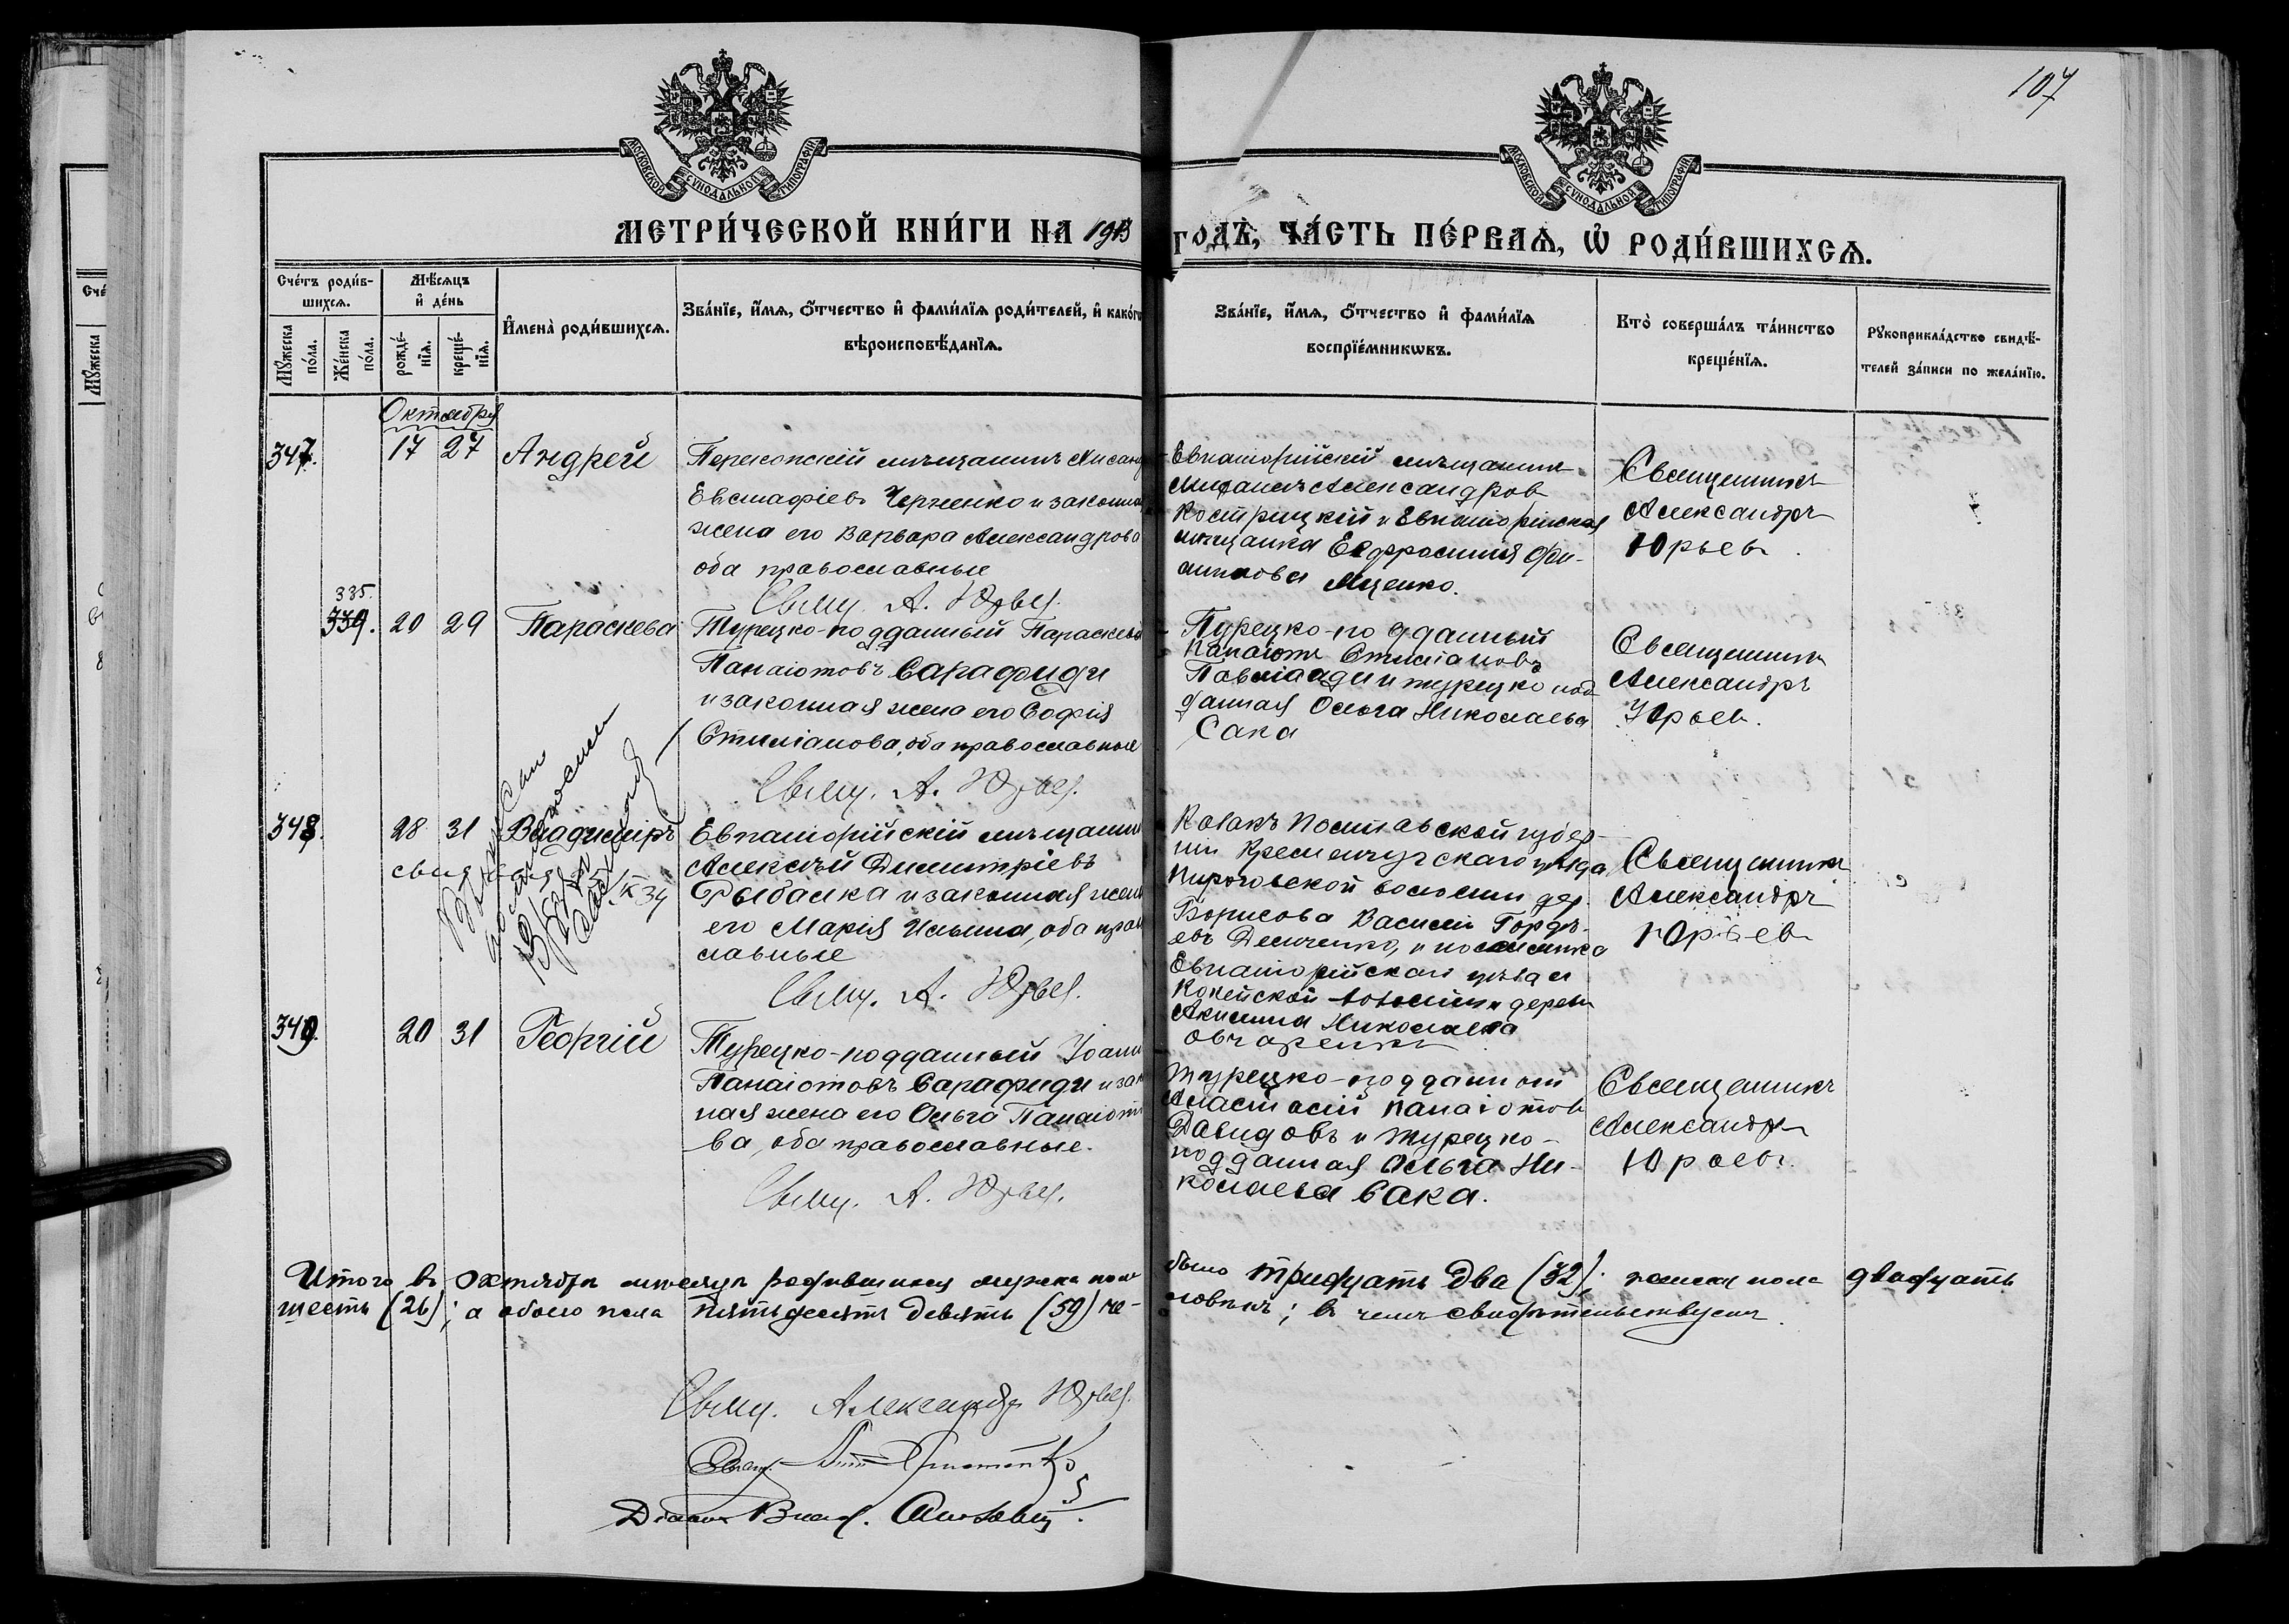 107
МОСКОВСКОЙ СѴНОДАЛЬНОЙ ТИПОГРАФІИ
МОСКОВСКОЙ СѴНОДАЛЬНОЙ ТИПОГРАФІИ
МЕТРИ́ЧЕСКОЙ КНИ́ГИ НА 1913 ГОДЪ, ЧА́СТЬ ПЕ́РВАѦ, Ѡ҆ РОДИ́ВШИХСѦ.
Сче́тъ роди́в-
шихсѧ.
Мꙋ́жеска по́ла.
Же́нска по́ла.
Мѣ́сѧцъ
и҆ де́нь
рожде́-
нїѧ.
креще́-
нїѧ.
И҆мена̀ роди́вшихсѧ.
Зва́нїе, и҆́мѧ, ѻ҆́тчество и҆ фами́лїѧ роди́телей, и҆ како́гѡ
вѣроисповѣ́данїѧ.
Зва́нїе, и҆́мѧ, ѻ҆́тчество и҆ фами́лїѧ
воспрїе́мникѡвъ.
Кто̀ соверша́лъ та́инство
креще́нїѧ.
Рꙋкоприкла́дство свидѣ́-
телей за́писи по жела́нїю.
Октября
347.
17 27
Андрей
Перекопскій мѣщанинъ
Евстафіевъ Черненко и законная
жена его Варвара Александрова
оба православные
Свящ. А. Юрьев.
Евпаторійскій мѣщанинъ
Александров
Кострицкій и Евпаторійская
мѣщанка Евфросинія Фи-
липпова Яценко.
Священникъ
Александръ
Юрьевъ.
335.
339. 20 29
Параскева
Турецко-подданный Параскева
Панаіотовъ Сарафиди
и законная жена его Софія
Стиліанова, оба православные
Свящ. А. Юрьев.
Турецко-подданный
Панаіотъ Стиліановъ
Павліади и турецко под
данная Ольга Николаева
Сака
Священникъ
Александръ
Юрьев.
348.
28 31
Владиміръ
Евпаторійскій мѣщанинъ
Алексѣй Димитріевъ
Рыбалка и законная жена
его Марія Ильина, оба прав
славные
Свящ. А. Юрьев.
Козакъ Полтавской губер-
ніи Кременчугскаго уѣзда
волости дер.
Борисова Василій Гордѣ-
евъ Демченко, и поселянка
Евпаторійскаго уѣзда
волости дерев
Акилина Николаева
Овчаренко
Священникъ
Александръ
Юрьев
IX 34
349.
20 31
Георгій
Турецко-подданный Іоаннъ
Панаіотовъ Сарафиди и зак
ная жена его Ольга Панаіото
ва, оба православные.
Свящ. А. Юрьев.
Турецко-подданный
Анастасій Панаіотовъ
Давидовъ и турецко-
подданная Ольга Ни-
колаева Сака.
Священникъ
Александръ
Юрьевъ.
Итого въ октябрѣ мѣсяцѣ родившихся мужска пола было тридцать два (32); женска пола двадцать
шесть (26); а обоего пола пятьдесятъ девять (59) че-ловѣкъ; въ чемъ свидѣтельствуемъ.
Свящ. Александръ Юрьев.
Діаконъ Влад.